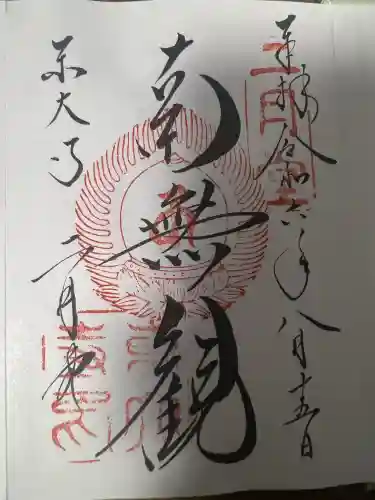 奉拝 令和六年八月十五日
南無観
東大寺 二月堂
二月堂